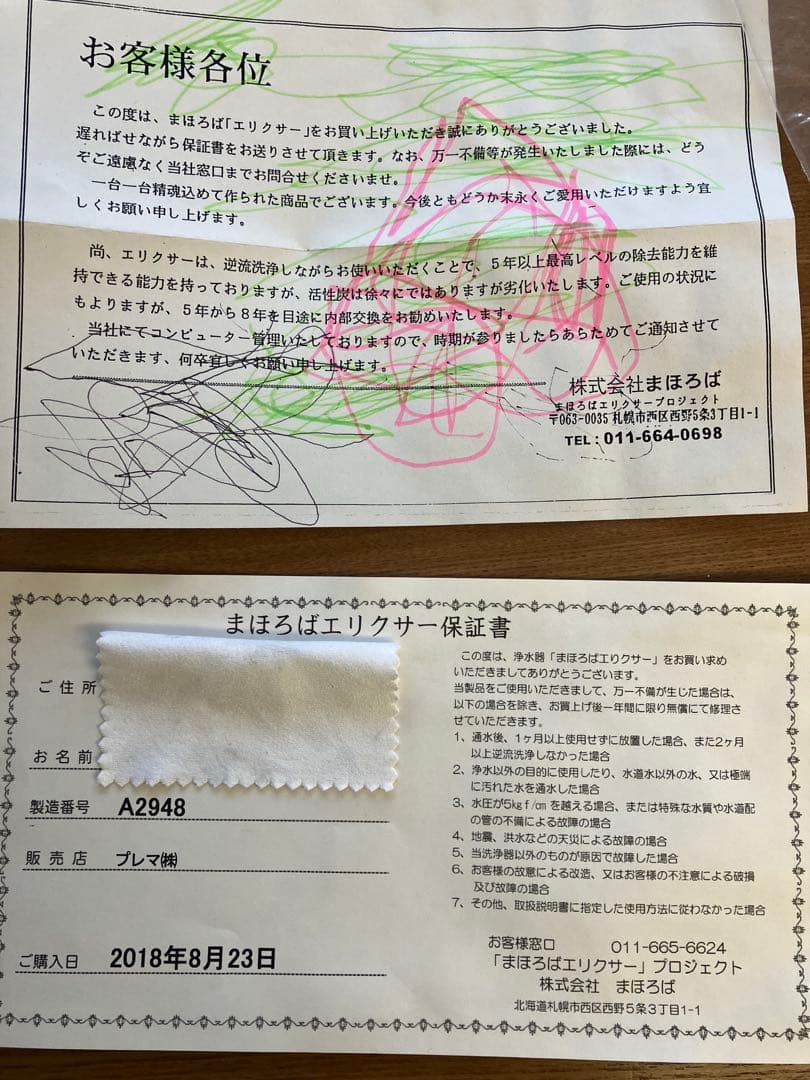 お客様各位
この度は、まほろば「エリクサー」をお買い上げいただき誠にありがとうございました。
遅ればせながら保証書をお送りさせて頂きます。なお、万一不備等が発生いたしました際には、どう
ぞご遠慮なく当社窓口までお問合せくださいませ。
一台一台精魂込めて作られた商品でございます。今後ともどうか末永くご愛用いただけますよう宜
しくお願い申し上げます。
尚、エリクサーは、逆流洗浄しながらお使いいただくことで、５年以上最高レベルの除去能力を維
持できる能力を持っておりますが、活性炭は徐々にではありますが劣化いたします。ご使用の状況に
もよりますが、５年から８年を目途に内部交換をお勧めいたします。
当社にてコンピューター管理いたしておりますので、時期が参りましたらあらためてご通知させて
いただきます、何卒宜しくお願い申し上げます。
株式会社まほろば
まほろばエリクサープロジェクト
〒063-0035 札幌市西区西野5条3丁目1-1
TEL：011-664-0698
まほろばエリクサー保証書
ご住所
お名前
製造番号 A2948
販売店 プレマ㈱
ご購入日 2018年8月23日
この度は、浄水器「まほろばエリクサー」をお買い求め
いただきましてありがとうございます。
当製品をご使用いただきまして、万一不備が生じた場合は、
以下の場合を除き、お買上げ後一年間に限り無償にて修理さ
せていただきます。
1、通水後、１ケ月以上使用せずに放置した場合、また2ケ月
以上逆流洗浄しなかった場合
2、浄水以外の目的に使用したり、水道水以外の水、又は極端
に汚れた水を通水した場合
3、水圧が5kgｆ/㎝を越える場合、または特殊な水質や水道配
の管の不備による故障の場合
4、地震、洪水などの天災による故障の場合
5、当洗浄器以外のものが原因で故障した場合
6、お客様の故意による改造、又はお客様の不注意による破損
及び故障の場合
7、その他、取扱説明書に指定した使用方法に従わなかった場合
お客様窓口 011-665-6624
「まほろばエリクサー」プロジェクト
株式会社 まほろば
北海道札幌市西区西野５条３丁目1-1